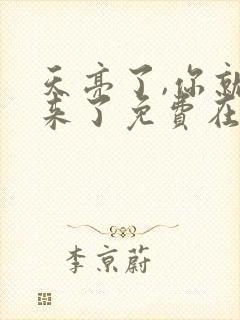 天亮了,你就
来了免费在
李京蔚